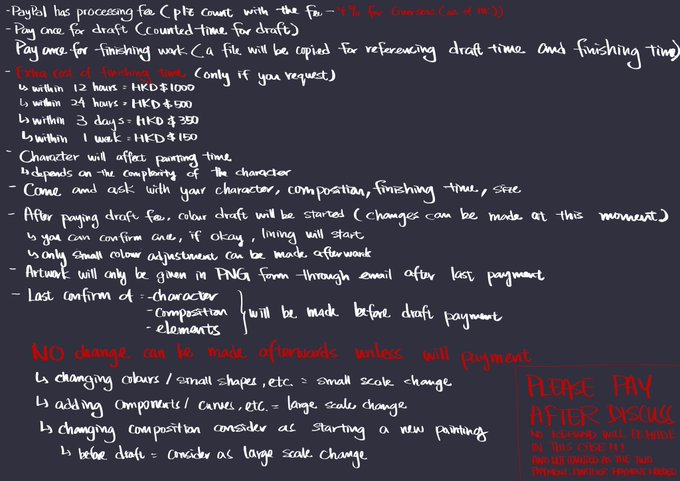 -PayPal has processing fee (plz count with the fee - 4% for oversea (as of me))
- Pay once for draft (counted time for draft)
Pay once for finishing work (a file will be copied for referencing draft time and finishing time)
- Extra cost of finishing time (only if you request)
↳ within 12 hours = HKD $1000
↳ within 24 hours = HKD $500
↳ within 3 days = HKD $350
↳ within 1 week = HKD $150
- Character will affect painting time
↳ depends on the complexity of the character
- Come and ask with your character, composition, finishing time, size
- After paying draft fee, colour draft will be started (changes can be made at this moment)
↳ you can confirm once, if okay, lining will start
↳ only small colour adjustment can be made afterward
- Artwork will only be given in PNG form through email after last payment
- Last confirm of = -character
- composition
- elements
will be made before draft payment
NO change can be made afterwards unless will payment
↳ changing colours / small shapes, etc. = small scale change
↳ adding components / curves, etc. = large scale change
↳ changing composition consider as starting a new painting
↳ before draft = consider as large scale change
PLEASE PAY
AFTER DISCUSS
NO REFUND WILL BE MADE
IN THIS CASE
AND
PAYMENT, FURTHER PAYMENT NEEDED